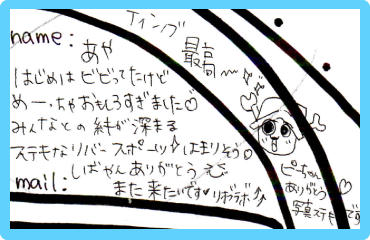 name: あや
ティング
最高〜
はじめはビビってたけど
めーっちゃおもしろすぎました♡
みんなとの絆が深まる
ステキなリバースポーツ♪はまりそう♡
しばやんありがとう
mail:
また来たいです♡リボラボ↑↑
ぴーちゃん
ありがとう♡
写真ステキです